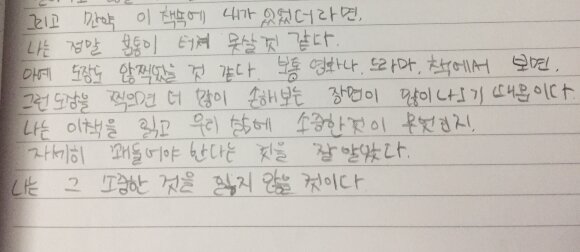 그리고 만약 이 책속에 내가 있었더라면,
나는 정말 분통이 터져 못살것 같다.
아예 도장도 안찍었을 것 같다. 보통 영화나, 드라마, 책에서 보면,
그런 도장을 찍으면 더 많이 손해보는 장면이 많이 나오기 때문이다.
나는 이책을 읽고 우리 삶에 소중한것이 무엇인지,
자세히 깨들어야 한다는 것을 잘 알았다.
나는 그 소중한 것을 잃지 않을 것이다.